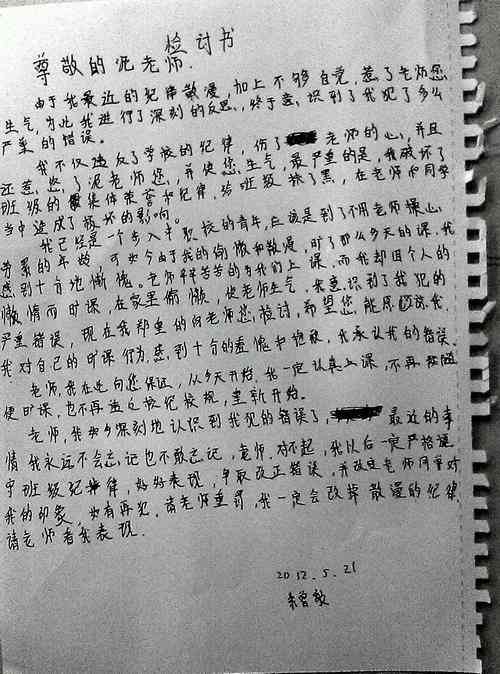 检讨书
尊敬的泥老师.
由于我最近的纪律散漫,加上不够自觉,惹了老师您
生气,为此我进行了深刻的反思,终于意识到了我犯了多么
严重的错误。
我不仅违反了学校的纪律,伤了 老师的心,并且
还惹了泥老师您,并使您生气,最严重的是,我破坏了
班级的集体荣誉和纪律,给班级抹了黑,在老师和同学
当中造成了极坏的影响。
我已经是一个步入 职校的青年,应该是到了不用老师操心
劳累的年龄,可如今由于我的偷懒和散漫,旷了那么多天的课,我
感到十分地惭愧。老师辛辛苦苦的为我们上课,而我却因个人的
懒惰而旷课,在家里偷懒,使老师生气,我意识到了我犯的
严重错误,现在我郑重的向老师您检讨,希望您能原谅我.
我对自己的旷课行为,感到十分的羞愧和抱歉,我承认我的错误.
老师,我在这向您保证,从今天开始,我一定认真上课,不再随
便旷课,也不再违反校纪校规,重新开始.
老师,我如今深刻地认识到我犯的错误了, 最近的事
情我永远不会忘记也不敢忘记,老师,对不起,我以后一定严格遵
守班级纪律,好好表现,争取改正错误,并改变老师同学对
我的印象,如有再犯,请老师重罚,我一定会改掉散漫的纪律,
请老师看我表现.
2012.5.21